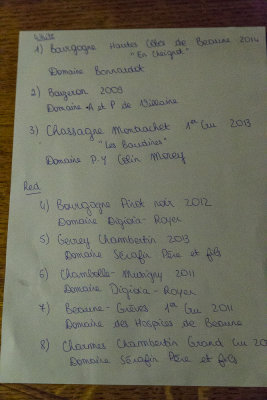 White
1) Bourgogne Hautes Côtes de Beaune 2014
"En Cheignot"
Domaine Bonnardot
2) Bouzeron 2009
Domaine A et P de Villaine
3) Chassagne Montrachet 1er Cru 2013
"Les Baudines"
Domaine P-Y Colin Morey
Red
4) Bourgogne Pinot noir 2012
Domaine Digioia-Royer
5) Gevrey Chambertin 2013
Domaine Sérafin Père et fils
6) Chambolle-Musigny 2011
Domaine Digioia-Royer
7) Beaune-Grèves 1er Cru 2011
Domaine des Hospices de Beaune
8) Charmes Chambertin Grand Cru 20
Domaine Sérafin Père et fils